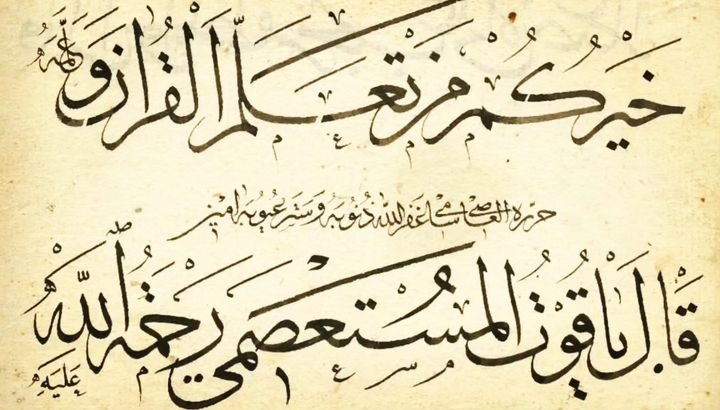 خَيْرُكُمْ مَنْ تَعَلَّمَ الْقُرْآنَ وَعَلَّمَهُ
حرره العاصي سامي غفر الله ذنوبه وستر عيوبه امين
قَالَ يَاقُوتُ الْمُسْتَعْصِمِي رَحْمَةُ اللَّهِ عَلَيْهِ